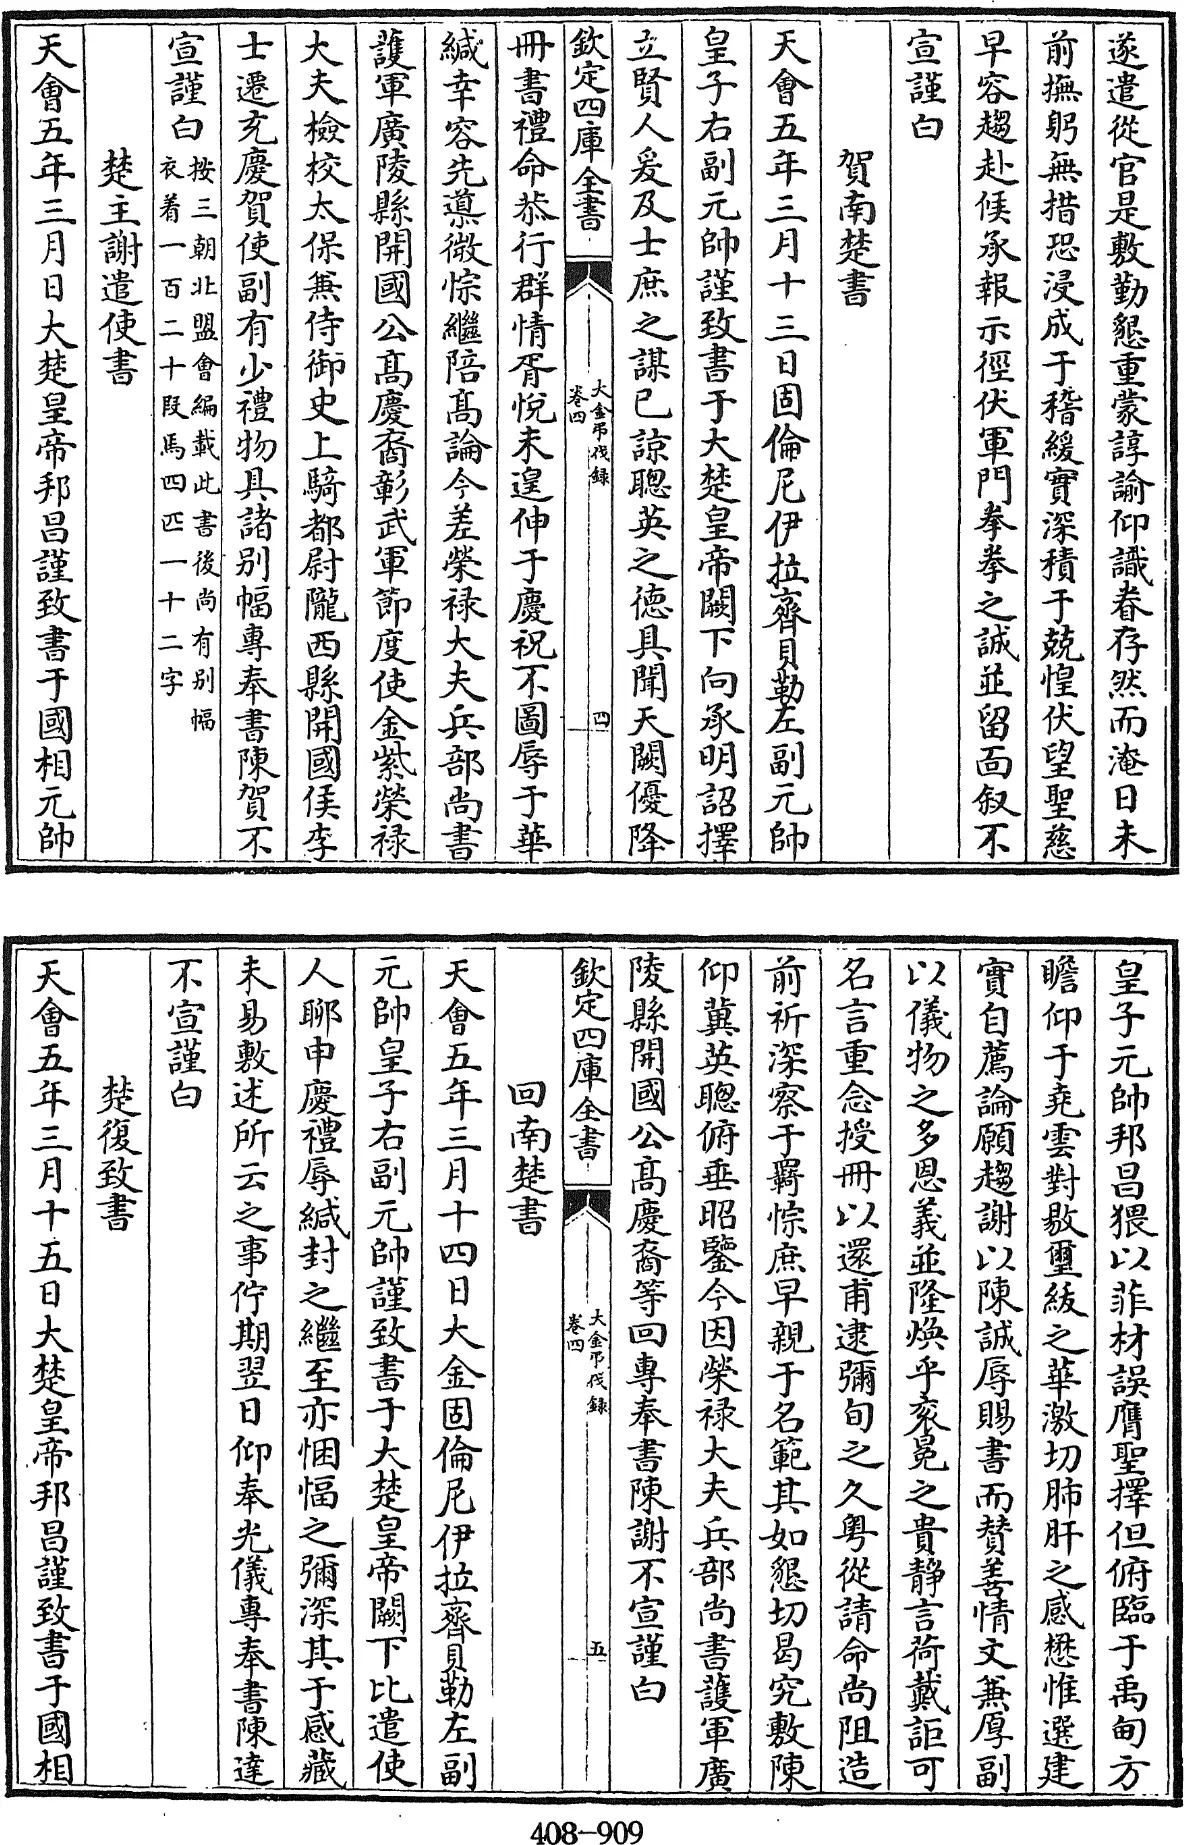 遂遣從官是敷勤懇重蒙諄諭仰識眷存然而淹日未
前撫躬無措恐浸成于稽緩實深積于兢惶伏望聖慈
早容趨赴候承報示徑伏軍門拳拳之誠並留面叙不
宣謹白
賀南楚書
天會五年三月十三日固倫尼伊拉齊貝勒左副元帥
皇子右副元帥謹致書于大楚皇帝闕下向承明詔擇
立賢人爰及士庶之謀已諒聰英之德具聞天闕優降
欽定四庫全書
大金弔伐録
卷四
四
冊書禮命恭行群情胥悅未遑伸于慶祝不圖辱于華
緘幸容先導微悰繼陪髙論今差榮禄大夫兵部尚書
護軍廣陵縣開國公髙慶裔彰武軍節度使金紫榮禄
大夫檢校太保兼侍御史上騎都尉隴西縣開國侯李
士遷充慶賀使副有少禮物具諸别幅專奉書陳賀不
宣謹白
按三朝北盟會編載此書後尚有别幅
衣着一百二十段馬四匹一十二字
楚主謝遣使書
天會五年三月日大楚皇帝邦昌謹致書于國相元帥
皇子元帥邦昌猥以菲材誤膺聖擇但俯臨于禹甸方
瞻仰于堯雲對敭璽紱之華激切肺肝之感懋惟選建
實自薦論願趨謝以陳誠辱賜書而賛善情文兼厚副
以儀物之多恩義並隆煥乎衮冕之貴静言荷戴詎可
名言重念授冊以還甫逮彌旬之久粤從請命尚阻造
前祈深察于羇悰庶早親于名範其如懇切曷究敷陳
仰冀英聰俯垂昭鑒今因榮禄大夫兵部尚書護軍廣
陵縣開國公髙慶裔等回專奉書陳謝不宣謹白
欽定四庫全書
大金弔伐録
卷四
五
回南楚書
天會五年三月十四日大金固倫尼伊拉齊貝勒左副
元帥皇子右副元帥謹致書于大楚皇帝闕下比遣使
人聊申慶禮辱緘封之繼至亦悃愊之彌深其于感藏
未易敷述所云之事佇期翌日仰奉光儀專奉書陳達
不宣謹白
楚復致書
天會五年三月十五日大楚皇帝邦昌謹致書于國相
408-909